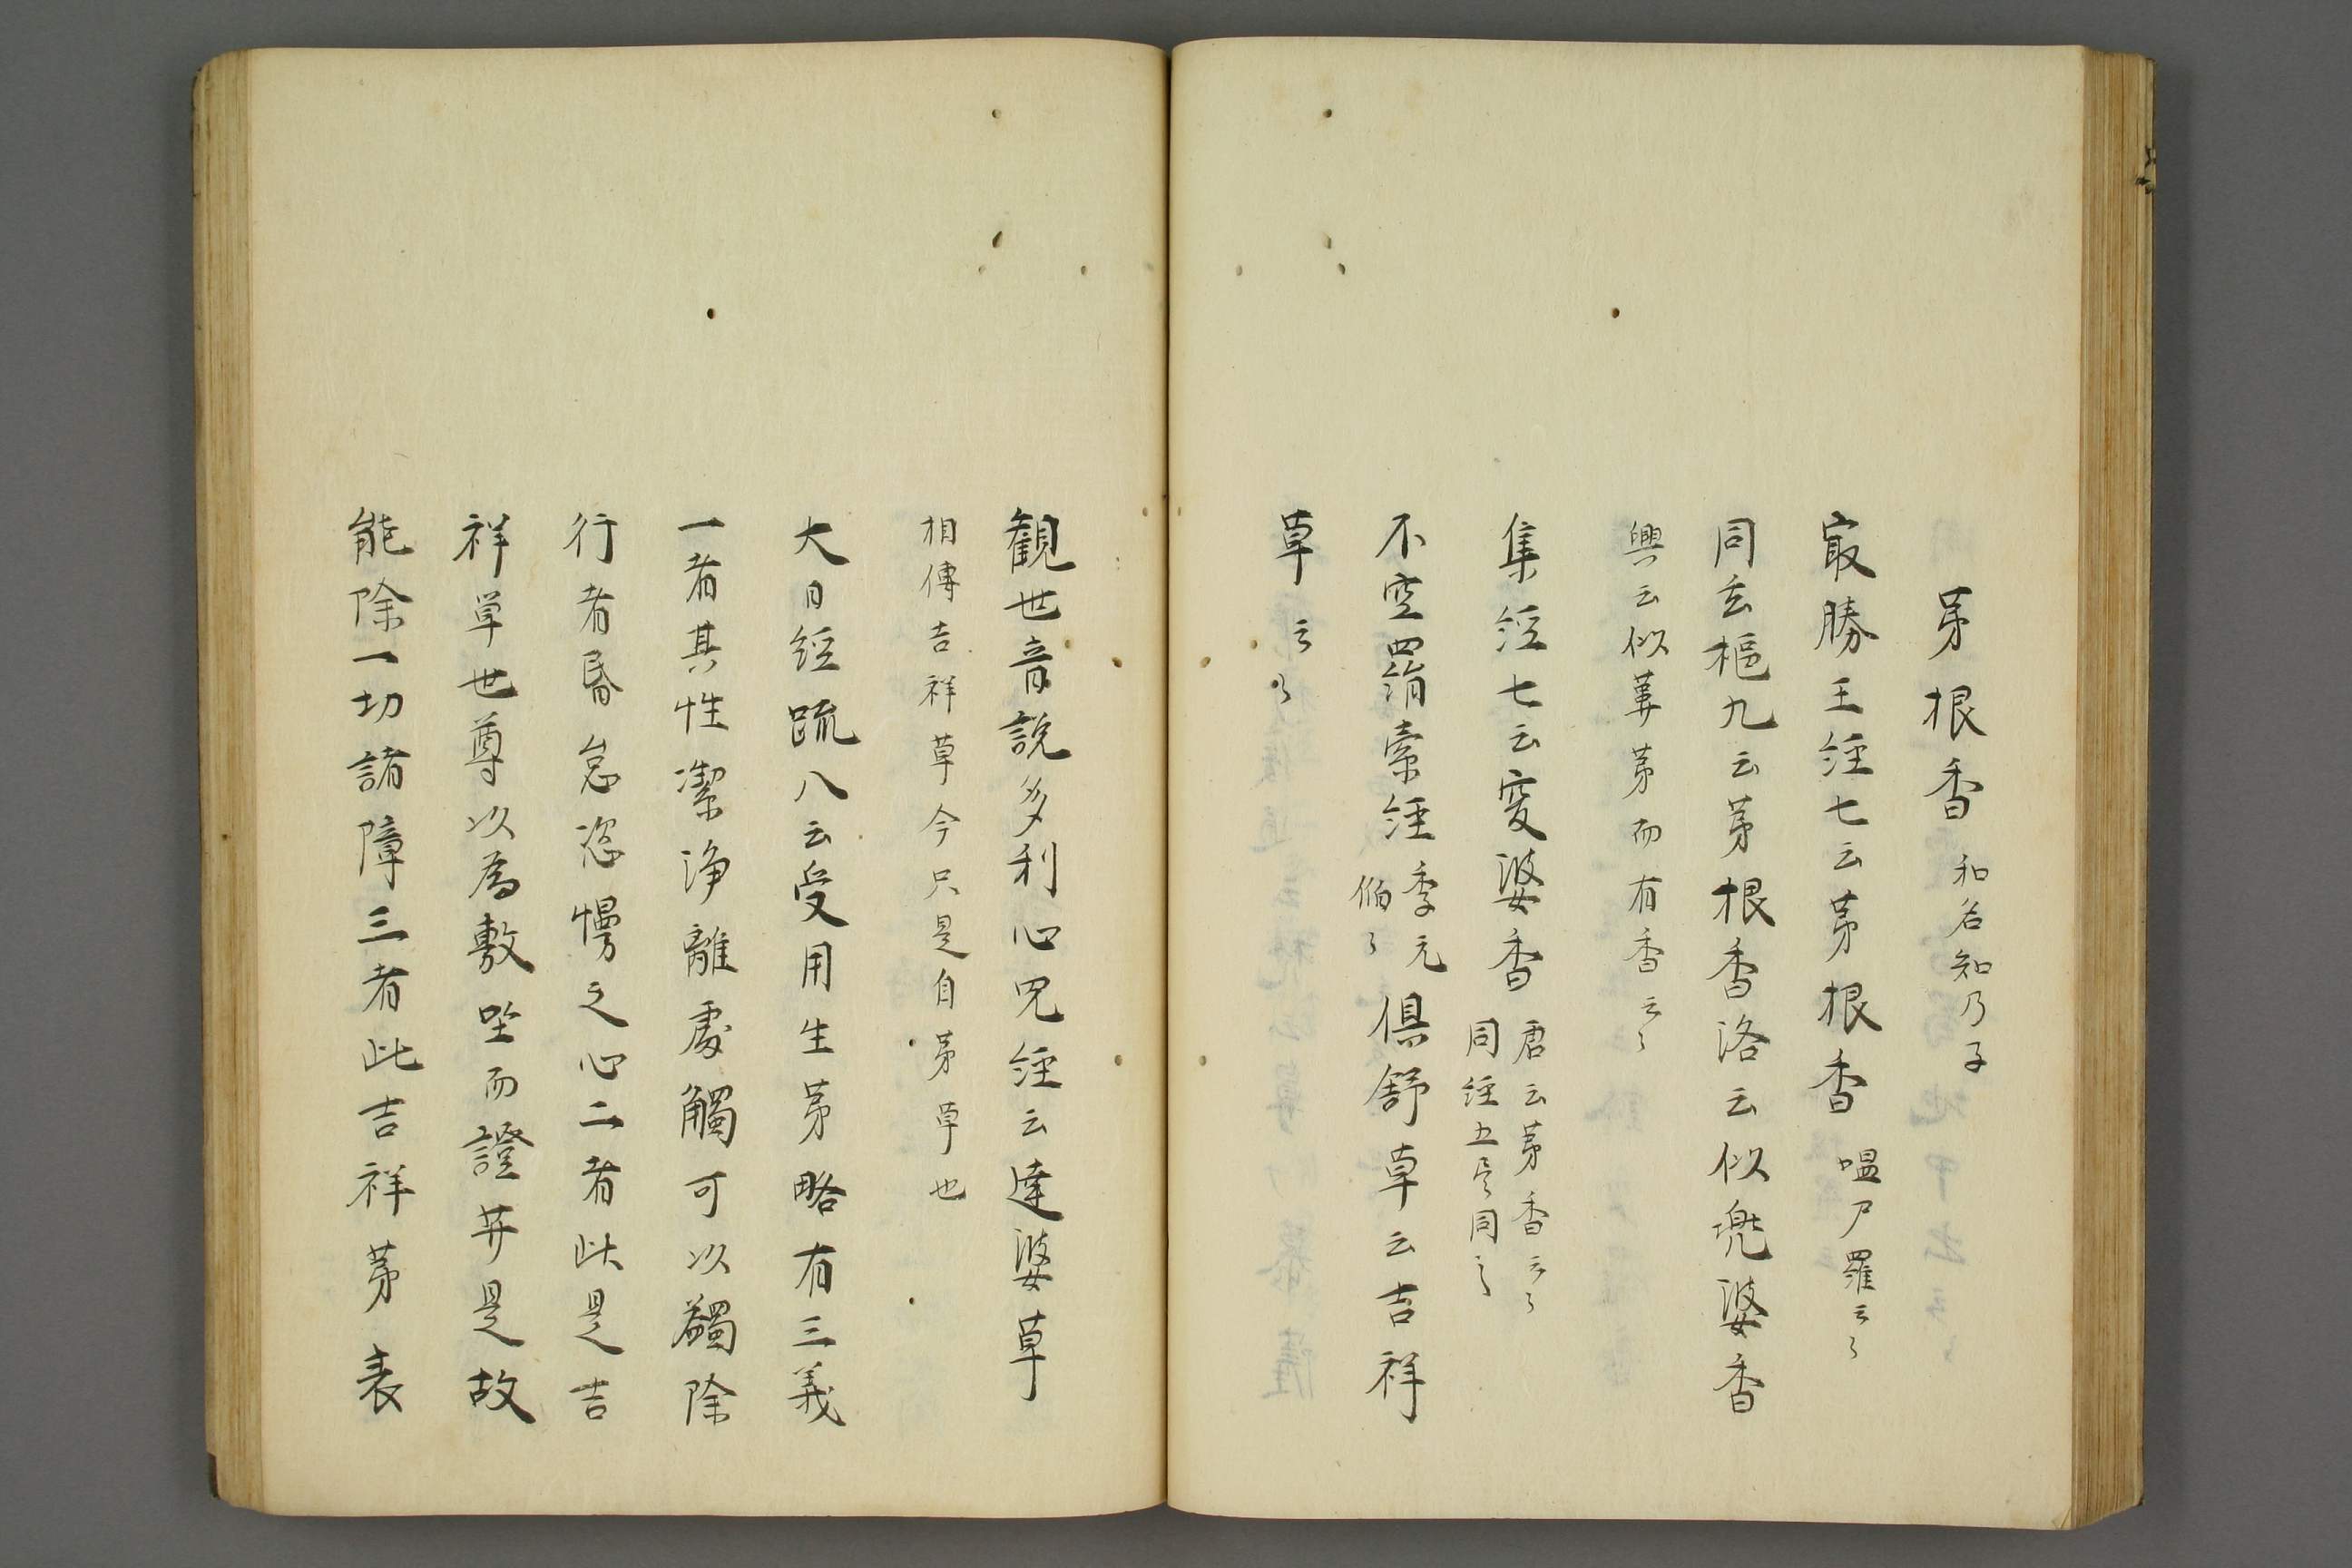 茅根香 和名知乃子
㝡勝王経七云茅根香 嗢尸羅云々
同玄樞九云茅根香洛云似兜婆香
興云似萋茅而有香云々
集経七云突婆香 唐云茅香云々 同経五同之
不空羂索経 俱舒草云吉祥
草云々
観世音説多利心咒経云達婆草
相傳吉祥草今只是自茅草也
大日経䟽八云受用生茅略有三義
一者其性潔浄離處觸可以蠲除
行者昏怠恣慢之心二者此是吉
祥草世尊以為敷坐而證𦬇是故
能除一切諸障三者此吉祥茅表